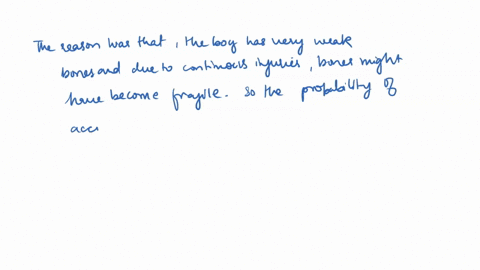 The reason was that, the boy has very weak
bones and due to continuous injuries, bones might
have become fragile. So the probability of
acc